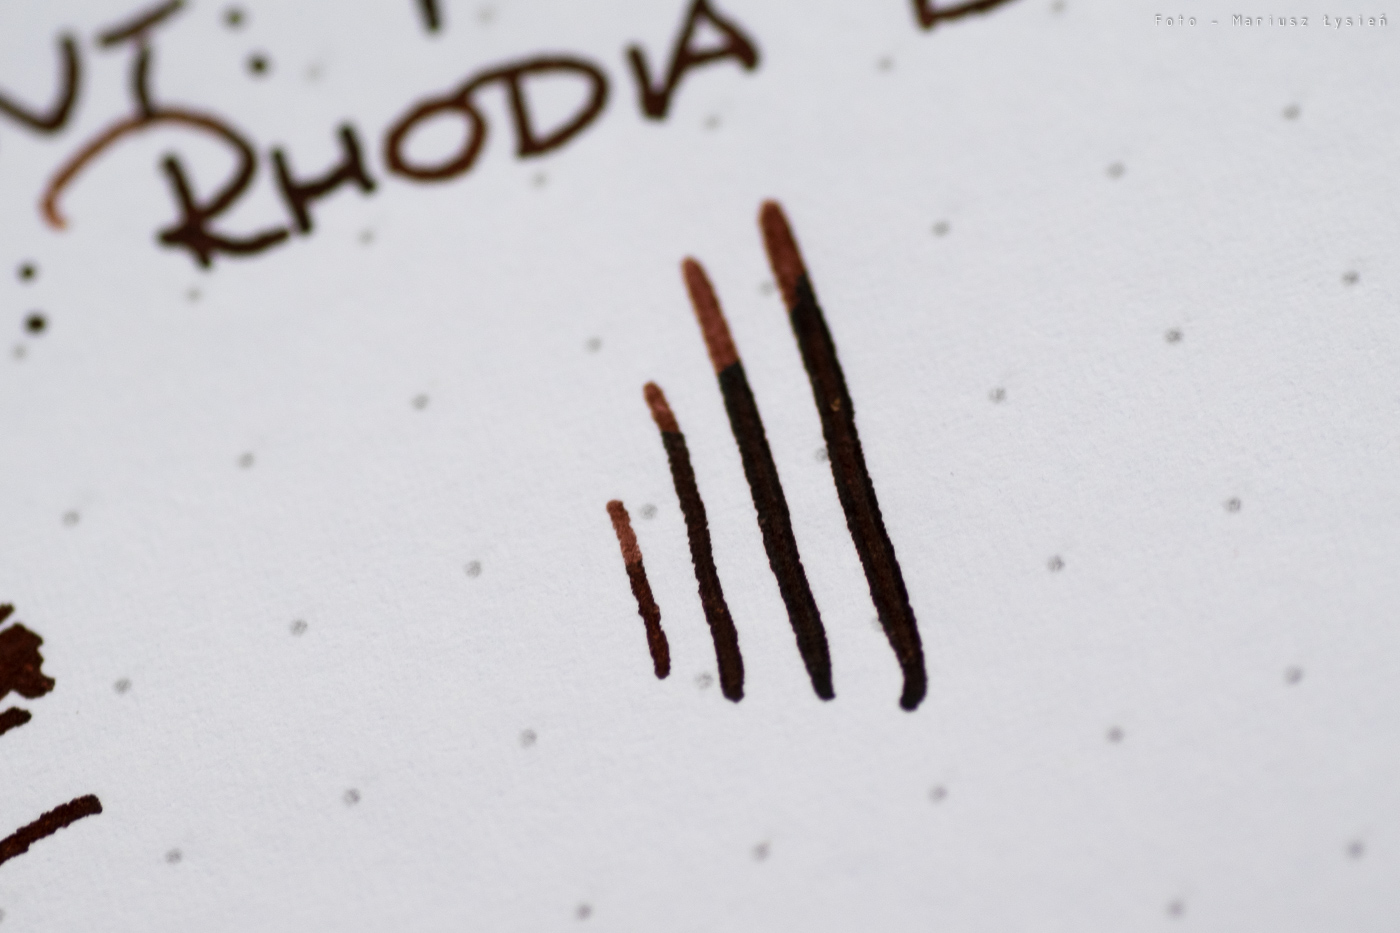 Foto - Mariusz Łysień
RHODIA